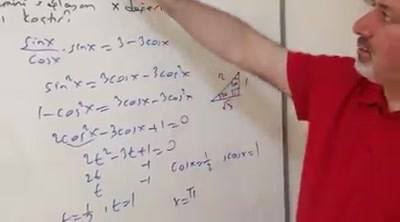 x değeri
kaçtır
sinx/cosx · sinx = 3-3cosx
sin²x = 3cosx-3cos²x
1-cos²x = 3cosx-3cos²x
2cos²x-3cosx+1=0
2t²-3t+1=0
2t -1
t -1
t=1/2, t=1
cosx=1/2, cosx=1
x=π
2 1 √3